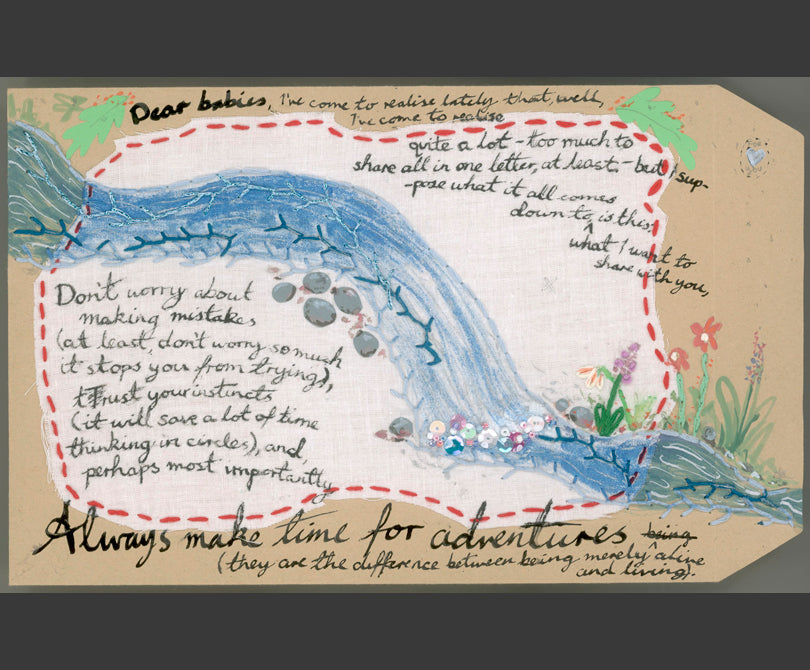 Dear babies, I've come to realise lately that, well,
I've come to realise
quite a lot - too much to
share all in one letter, at least, - but I sup-
-pose what it all comes
down to, is this,
what I want to
share with you,
Don't worry about
making mistakes
(at least, don't worry so much
it stops you from trying),
trust your instincts
(it will save a lot of time
thinking in circles), and,
perhaps most importantly
Always make time for adventures being
(they are the difference between being merely alive
and living).